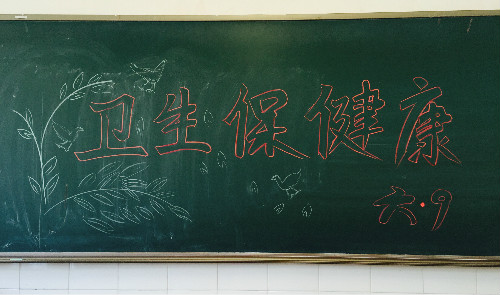 卫生保健康
六·9